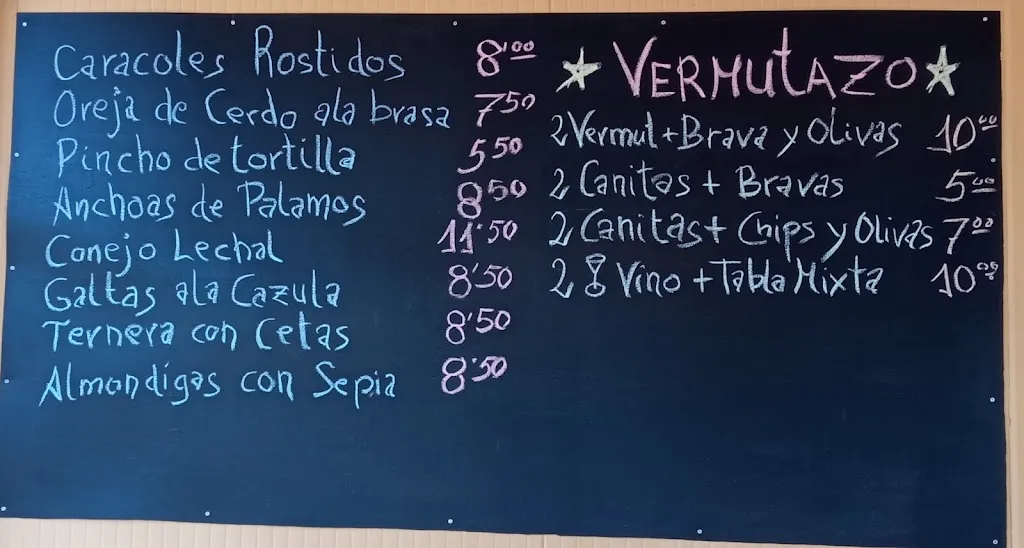 Caracoles Rostidos 8'00
Oreja de Cerdo ala brasa 7'50
Pincho de tortilla 5'50
Anchoas de Palamos 8'50
Conejo Lechal 11'50
Galtas ala Cazula 8'50
Ternera con Cetas 8'50
Almondigas con Sepia 8'50
VERMUTAZO
2 Vermut + Brava y Olivas 10'00
2 Canitas + Bravas 5'00
2 Canitas + Chips y Olivas 7'00
2 Vino + Tabla Mixta 10'00